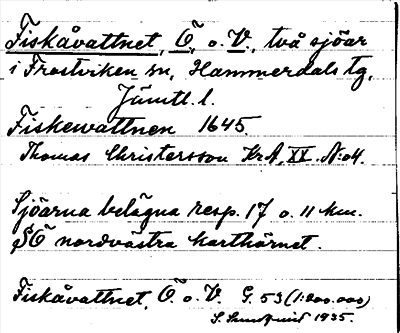 Fiskåvattnet, Ö. o. V., två sjöar
i Frostviken sn, Hammerdals tg,
Jämtl. l.
Fiskewattnen 1645.
Thomas Christersson KrA, XX. N:o 4.
Sjöarna belägna resp. 17 o. 11 km.
SÖ nordvästra karthörnet.
Fiskåvattnet, Ö. o. V. G. 53 (1:200.000)
S. 1935.